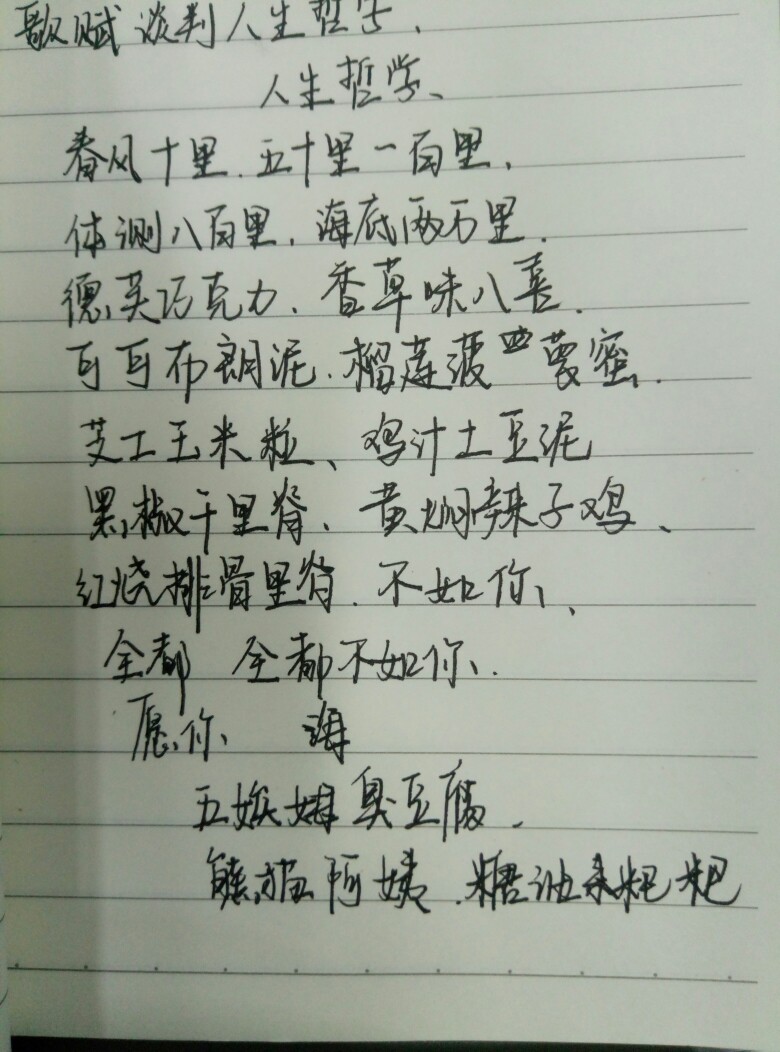 歌赋谈判人生哲学、
人生哲学、
春风十里.五十里一百里、
体测八百里.海底两万里.
德芙巧克力、香草味八喜.
可可布朗泥.榴莲菠蘿蜜.
芝士玉米粒、鸡汁土豆泥
黑椒千里脊、黄焖辣子鸡、
红烧排骨里脊.不如你、
全都 全都不如你、.
愿你 海
五娭毑臭豆腐.
熊猫阿姨.糖油杂粑粑